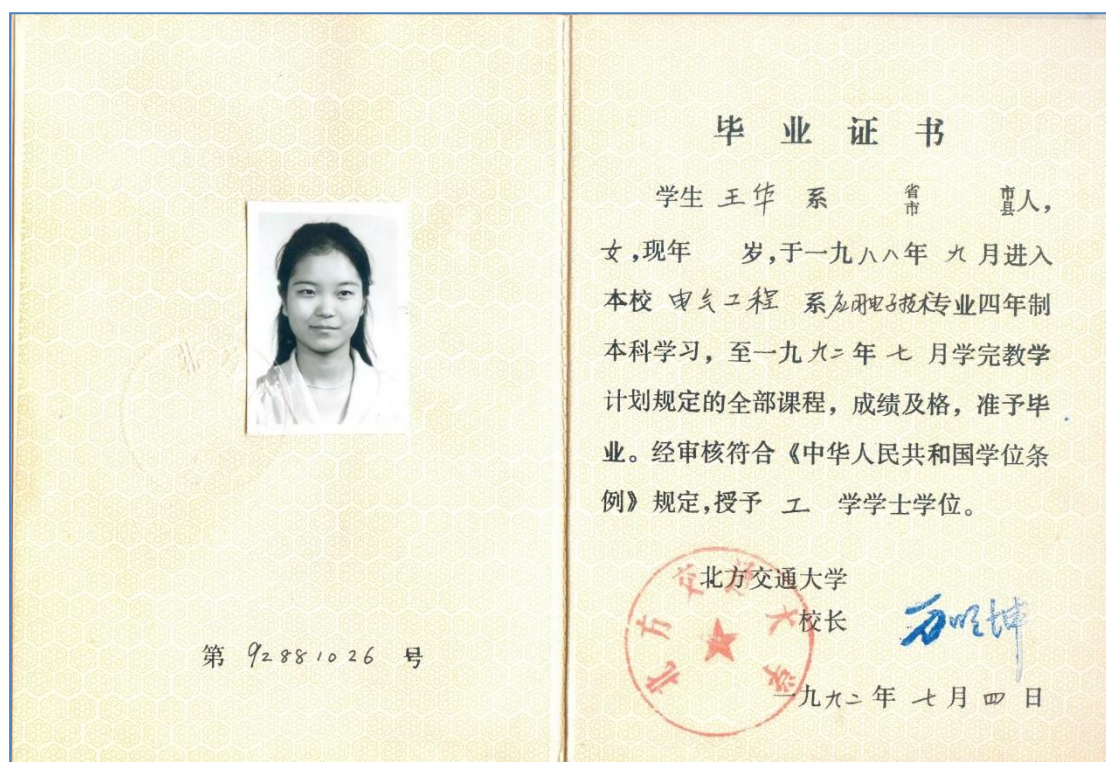 第 92881026 号
毕业证书
学生 王华 系 省市 市县人，
女，现年 岁，于一九八八年 九 月进入
本校 电气工程 系应用电子技术专业四年制
本科学习，至一九九二年 七 月学完教学
计划规定的全部课程，成绩及格，准予毕
业。经审核符合《中华人民共和国学位条
例》规定，授予 工 学学士学位。
北方交通大学
校长 万明坤
北方交通大学
一九九二年 七月 四 日